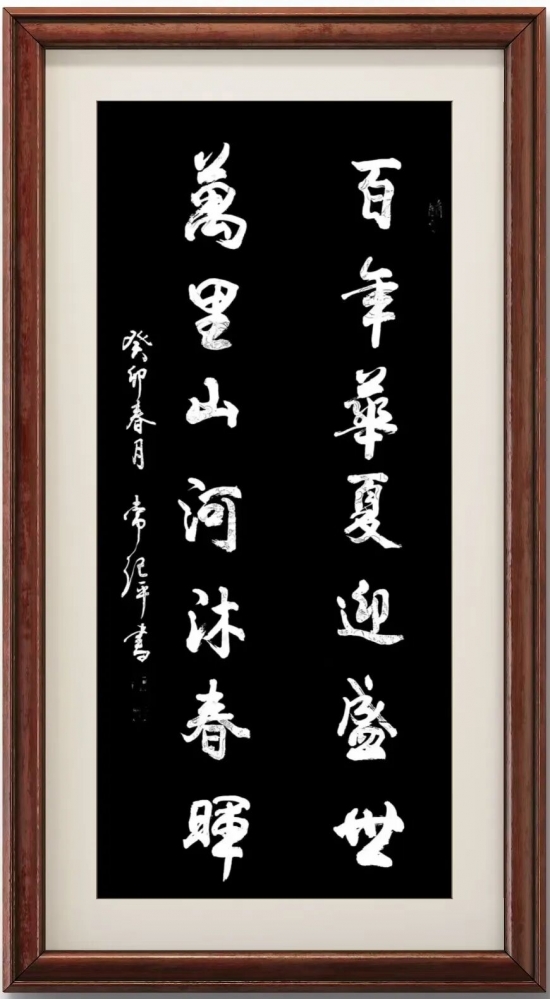 百年華夏迎盛世
萬里山河沐春暉
癸卯春月 常记平書